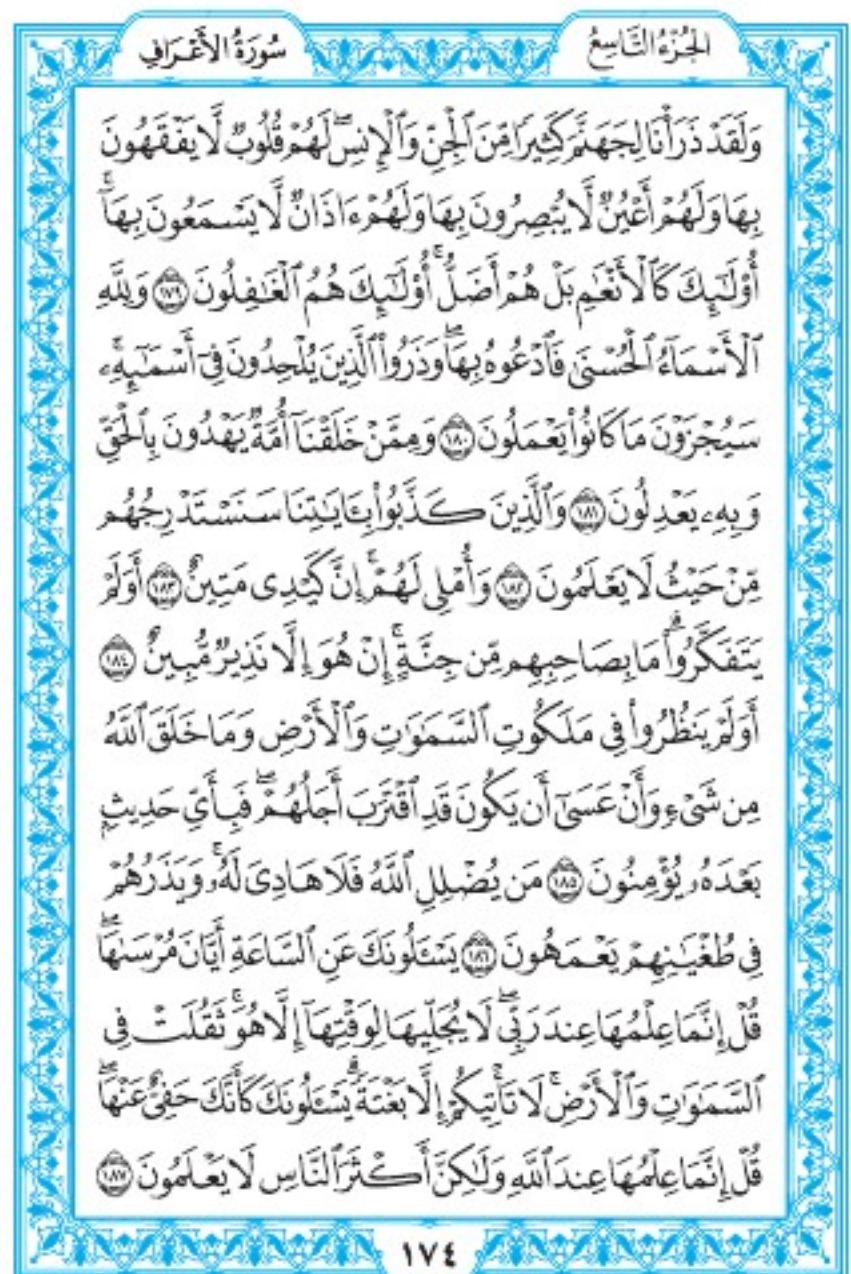 الجُزْءُ التَّاسِعُ سُورَةُ الأَعْرَافِ
وَلَقَدْ ذَرَأْنَا لِجَهَنَّمَ كَثِيرًا مِّنَ ٱلْجِنِّ وَٱلْإِنسِۖ لَهُمْ قُلُوبٌ لَّا يَفْقَهُونَ
بِهَا وَلَهُمْ أَعْيُنٌ لَّا يُبْصِرُونَ بِهَا وَلَهُمْ ءَاذَانٌ لَّا يَسْمَعُونَ بِهَآۚ
أُوْلَٰٓئِكَ كَٱلْأَنْعَٰمِ بَلْ هُمْ أَضَلُّۚ أُوْلَٰٓئِكَ هُمُ ٱلْغَٰفِلُونَ ١٧٩ وَلِلَّهِ
ٱلْأَسْمَآءُ ٱلْحُسْنَىٰ فَٱدْعُوهُ بِهَاۖ وَذَرُواْ ٱلَّذِينَ يُلْحِدُونَ فِىٓ أَسْمَٰٓئِهِۦۚ
سَيُجْزَوْنَ مَا كَانُواْ يَعْمَلُونَ ١٨٠ وَمِمَّنْ خَلَقْنَآ أُمَّةٌ يَهْدُونَ بِٱلْحَقِّ
وَبِهِۦ يَعْدِلُونَ ١٨١ وَٱلَّذِينَ كَذَّبُواْ بِـَٔايَٰتِنَا سَنَسْتَدْرِجُهُم
مِّنْ حَيْثُ لَا يَعْلَمُونَ ١٨٢ وَأُمْلِى لَهُمْۚ إِنَّ كَيْدِى مَتِينٌ ١٨٣ أَوَلَمْ
يَتَفَكَّرُواْۗ مَا بِصَاحِبِهِم مِّن جِنَّةٍۚ إِنْ هُوَ إِلَّا نَذِيرٌ مُّبِينٌ ١٨٤
أَوَلَمْ يَنظُرُواْ فِى مَلَكُوتِ ٱلسَّمَٰوَٰتِ وَٱلْأَرْضِ وَمَا خَلَقَ ٱللَّهُ
مِن شَىْءٍ وَأَنْ عَسَىٰٓ أَن يَكُونَ قَدِ ٱقْتَرَبَ أَجَلُهُمْۖ فَبِأَىِّ حَدِيثٍۭ
بَعْدَهُۥ يُؤْمِنُونَ ١٨٥ مَن يُضْلِلِ ٱللَّهُ فَلَا هَادِىَ لَهُۥۚ وَيَذَرُهُمْ
فِى طُغْيَٰنِهِمْ يَعْمَهُونَ ١٨٦ يَسْـَٔلُونَكَ عَنِ ٱلسَّاعَةِ أَيَّانَ مُرْسَىٰهَاۖ
قُلْ إِنَّمَا عِلْمُهَا عِندَ رَبِّىۖ لَا يُجَلِّيهَا لِوَقْتِهَآ إِلَّا هُوَۚ ثَقُلَتْ فِى
ٱلسَّمَٰوَٰتِ وَٱلْأَرْضِۚ لَا تَأْتِيكُمْ إِلَّا بَغْتَةًۗ يَسْـَٔلُونَكَ كَأَنَّكَ حَفِىٌّ عَنْهَاۖ
قُلْ إِنَّمَا عِلْمُهَا عِندَ ٱللَّهِ وَلَٰكِنَّ أَكْثَرَ ٱلنَّاسِ لَا يَعْلَمُونَ ١٨٧
١٧٤